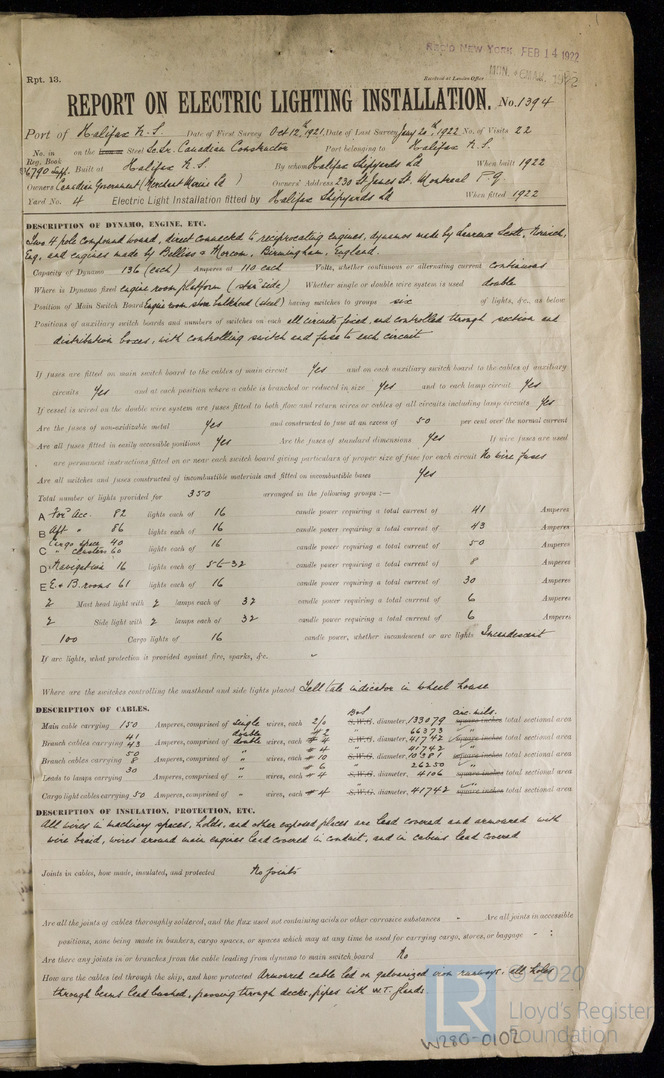 Rec'd NEW YORK FEB 14 1922
Rpt. 13.
Received at London Office
MON. 6 MAR. 1922
REPORT ON ELECTRIC LIGHTING INSTALLATION. No. 1394
Port of Halifax N.S. Date of First Survey Oct 12th 1921 Date of Last Survey Jany 20th 1922 No. of Visits 22
No. in Reg. Book on the Steel Sc. Sr. Canadian Constructor Port belonging to Halifax N.S.
6790 Supp. Built at Halifax N.S. By whom Halifax Shipyards Ld When built 1922
Owners Canadian Government (Merchant Marine Ld) Owners' Address 230 St James St. Montreal P.Q.
Yard No. 4 Electric Light Installation fitted by Halifax Shipyards Ld When fitted 1922
DESCRIPTION OF DYNAMO, ENGINE, ETC.
Two 4 pole Compound wound, direct connected to reciprocating engines, dynamos made by Laurence Scott, Norwich,
Eng. and engines made by Belliss & Morcom, Birmingham, England.
Capacity of Dynamo 136 (each) Amperes at 110 each Volts, whether continuous or alternating current continuous
Where is Dynamo fixed engine room platform (star side) Whether single or double wire system is used double
Position of Main Switch Board Engine room store bulkhead (steel) having switches to groups six of lights, &c., as below
Positions of auxiliary switch boards and numbers of switches on each all circuits fused, and controlled through section and
distribution boxes, with controlling switch and fuse to each circuit
If fuses are fitted on main switch board to the cables of main circuit Yes and on each auxiliary switch board to the cables of auxiliary
circuits Yes and at each position where a cable is branched or reduced in size Yes and to each lamp circuit Yes
If vessel is wired on the double wire system are fuses fitted to both flow and return wires or cables of all circuits including lamp circuits Yes
Are the fuses of non-oxidizable metal Yes and constructed to fuse at an excess of 50 per cent over the normal current
Are all fuses fitted in easily accessible positions Yes Are the fuses of standard dimensions Yes If wire fuses are used
are permanent instructions fitted on or near each switch board giving particulars of proper size of fuse for each circuit No wire fuses
Are all switches and fuses constructed of incombustible materials and fitted on incombustible bases Yes
Total number of lights provided for 350 arranged in the following groups :—
A For'd Acc. 82 lights each of 16 candle power requiring a total current of 41 Amperes
B Aft " 86 lights each of 16 candle power requiring a total current of 43 Amperes
C Cargo space 40 " clusters 60 lights each of 16 candle power requiring a total current of 50 Amperes
D Navigation 16 lights each of 56-32 candle power requiring a total current of 8 Amperes
E E. & B. rooms 61 lights each of 16 candle power requiring a total current of 30 Amperes
2 Mast head light with 2 lamps each of 32 candle power requiring a total current of 6 Amperes
2 Side light with 2 lamps each of 32 candle power requiring a total current of 6 Amperes
100 Cargo lights of 16 candle power, whether incandescent or arc lights Incandescent
If arc lights, what protection is provided against fire, sparks, &c. "
Where are the switches controlling the masthead and side lights placed Tell tale indicator in wheel house
DESCRIPTION OF CABLES.
Main cable carrying 150 Amperes, comprised of single wires, each 2/0 S.W.G. diameter, 133079 square inches total sectional area
double #2 " 66373 "
Branch cables carrying 41 43 Amperes, comprised of double wires, each #4 S.W.G. diameter, 41742 square inches total sectional area
50 " #4 " 41742 "
Branch cables carrying 8 Amperes, comprised of " wires, each #10 S.W.G. diameter, 10381 square inches total sectional area
30 " #6 " 26250 "
Leads to lamps carrying Amperes, comprised of " wires, each S.W.G. diameter, 4106 square inches total sectional area
Cargo light cables carrying 50 Amperes, comprised of " wires, each #4 S.W.G. diameter, 41742 square inches total sectional area
DESCRIPTION OF INSULATION, PROTECTION, ETC.
All wires in machinery spaces, holds, and other exposed places are lead covered and armoured with
wire braid, wires around main engines lead covered in conduit, and in cabins lead covered
Joints in cables, how made, insulated, and protected No joints
Are all the joints of cables thoroughly soldered, and the flux used not containing acids or other corrosive substances - Are all joints in accessible
positions, none being made in bunkers, cargo spaces, or spaces which may at any time be used for carrying cargo, stores, or baggage -
Are there any joints in or branches from the cable leading from dynamo to main switch board No
How are the cables led through the ship, and how protected Armoured cable led on galvanized iron runways. all holes
through beams lead bushed, passing through decks, pipes with W.T. glands.
© 2020
LR Lloyd's Register
Foundation
W280-0102